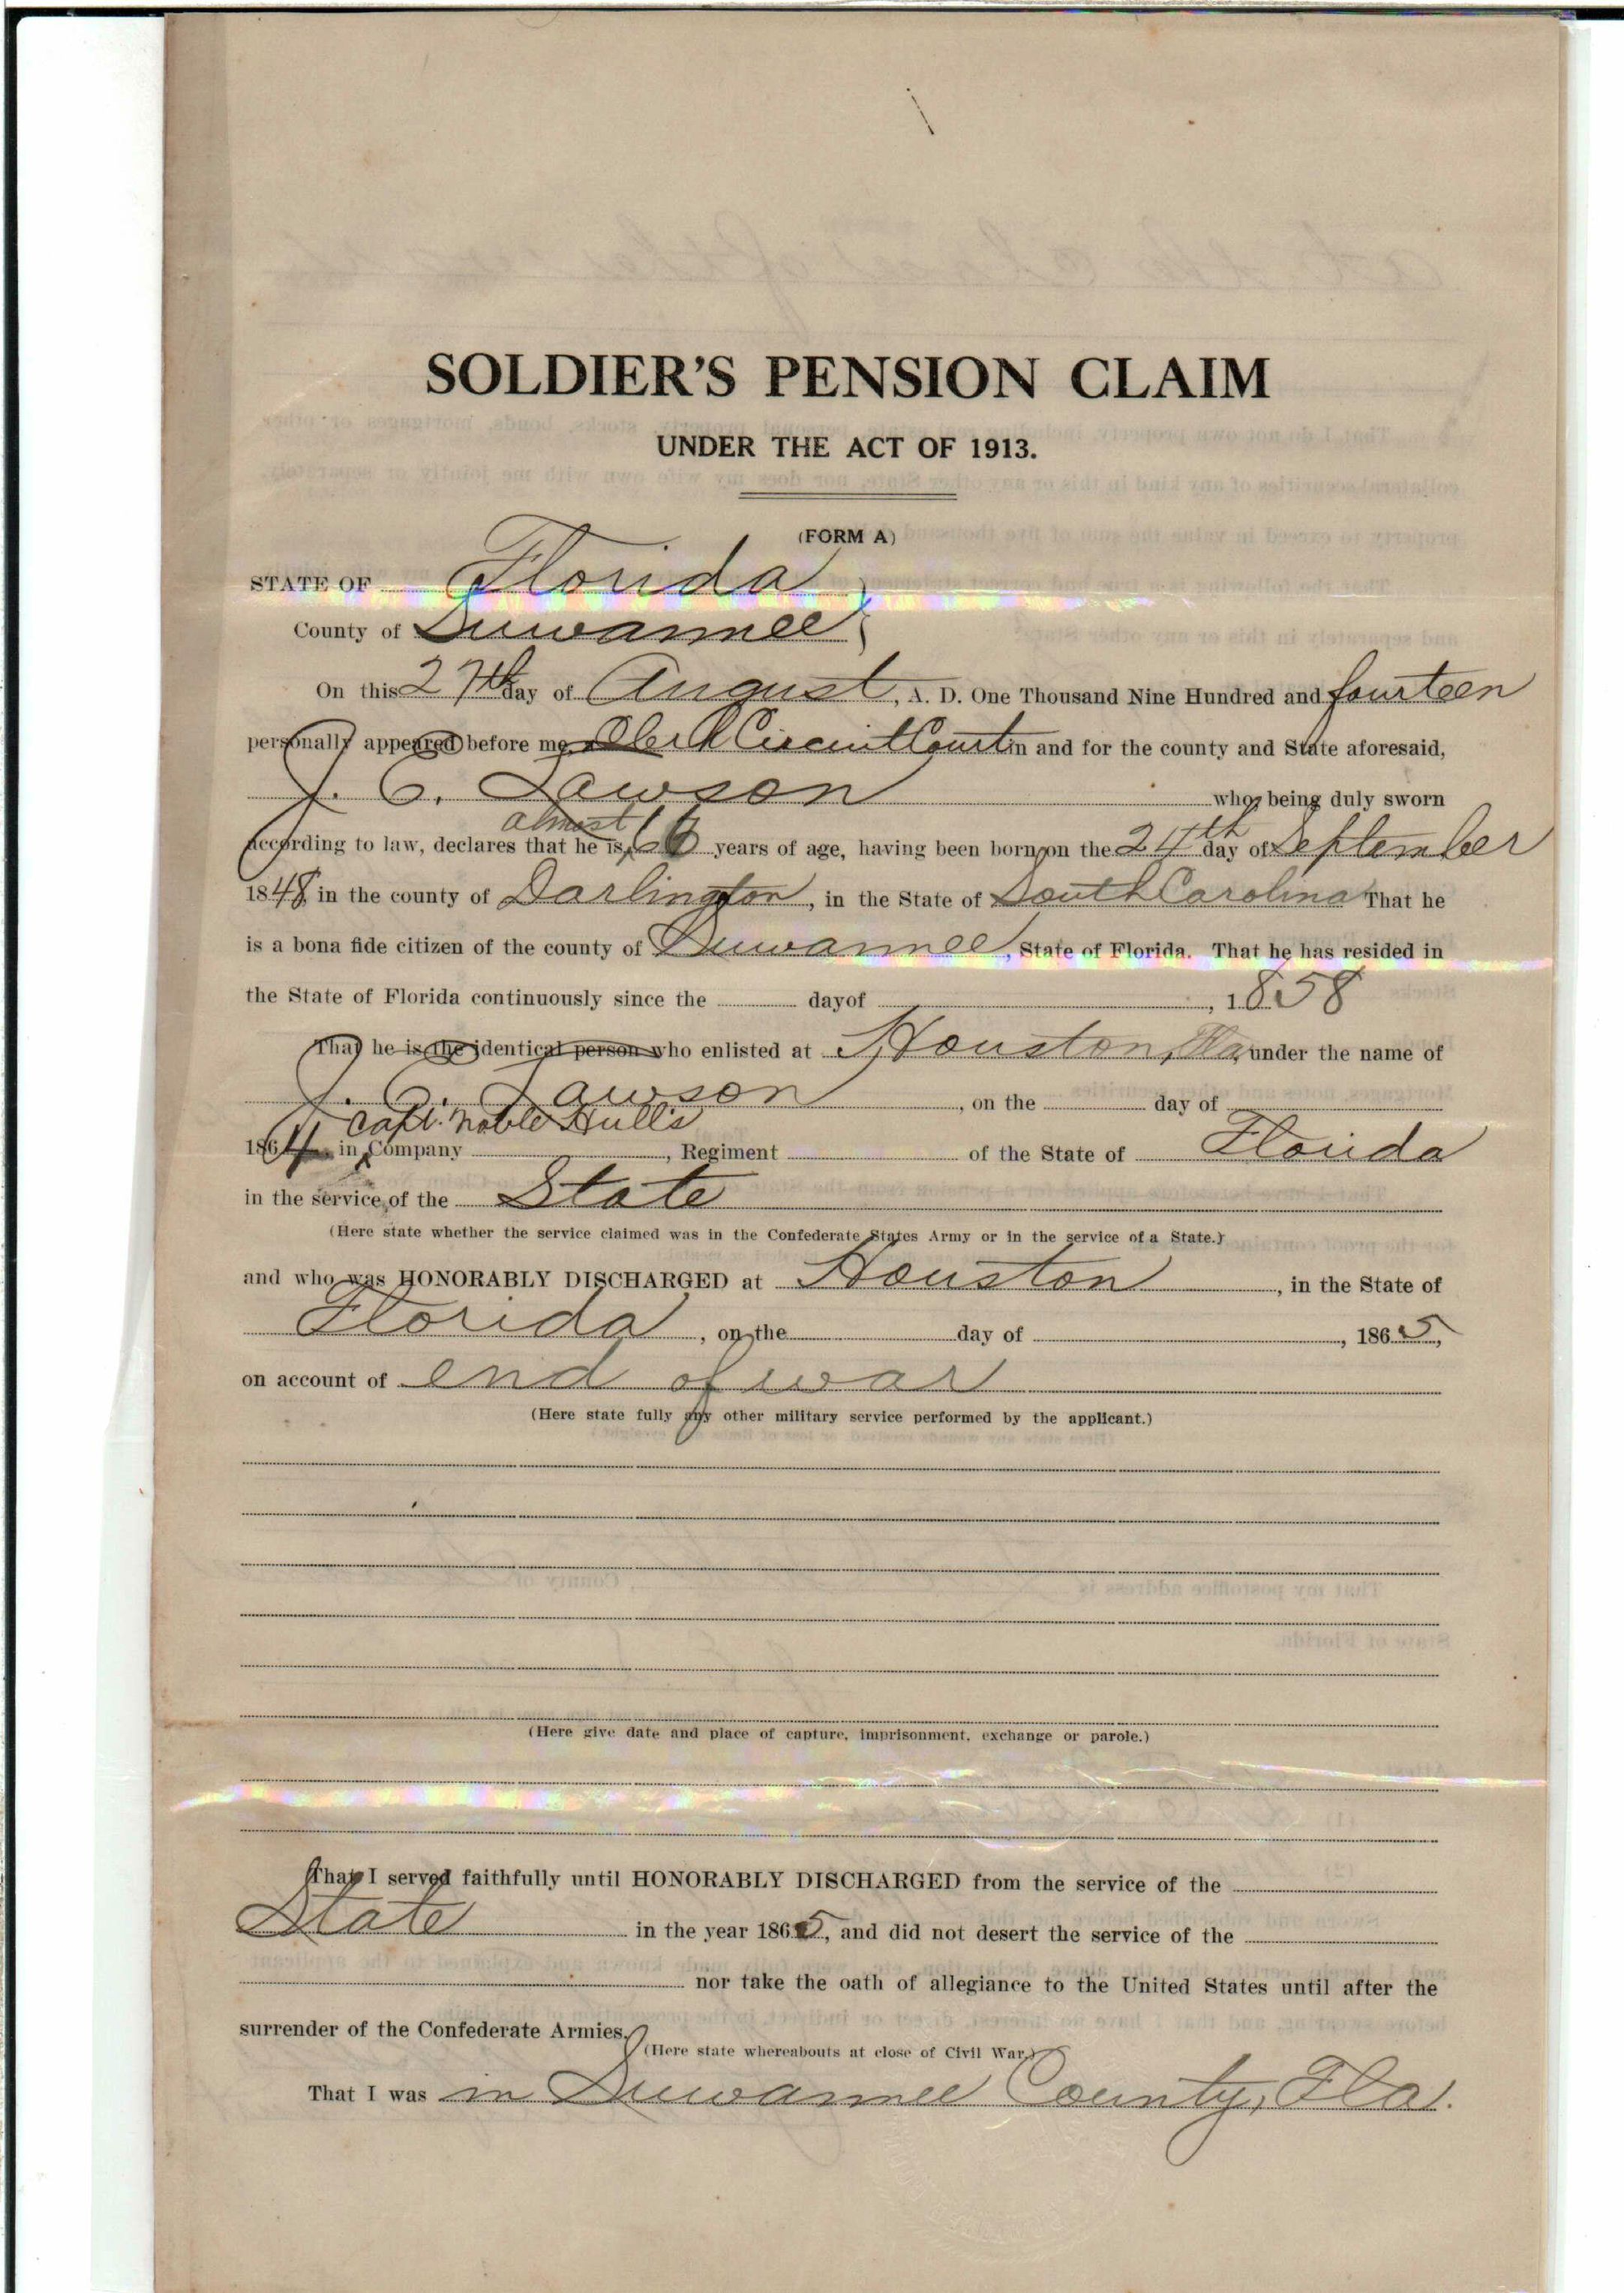 SOLDIER'S PENSION CLAIM
UNDER THE ACT OF 1913.
(FORM A)
STATE OF Florida
County of Suwannee
On this 27th day of August, A. D. One Thousand Nine Hundred and fourteen
personally appeared before me Clerk Circuit Court in and for the county and State aforesaid,
J. C. Lawson who, being duly sworn
almost
according to law, declares that he is 66 years of age, having been born on the 24th day of September
1848, in the county of Darlington, in the State of South Carolina That he
is a bona fide citizen of the county of Suwannee, State of Florida. That he has resided in
the State of Florida continuously since the day of , 1858
That he is the identical person who enlisted at Houston, Fla, under the name of
J. C. Lawson , on the day of
Capt. Noble Hull's
1864 in Company , Regiment of the State of Florida
in the service of the State
(Here state whether the service claimed was in the Confederate States Army or in the service of a State.)
and who was HONORABLY DISCHARGED at Houston , in the State of
Florida , on the day of , 1865,
on account of end of war
(Here state fully any other military service performed by the applicant.)
(Here give date and place of capture, imprisonment, exchange or parole.)
That I served faithfully until HONORABLY DISCHARGED from the service of the
State in the year 1865, and did not desert the service of the
nor take the oath of allegiance to the United States until after the
surrender of the Confederate Armies.
(Here state whereabouts at close of Civil War.)
That I was in Suwannee County, Fla.